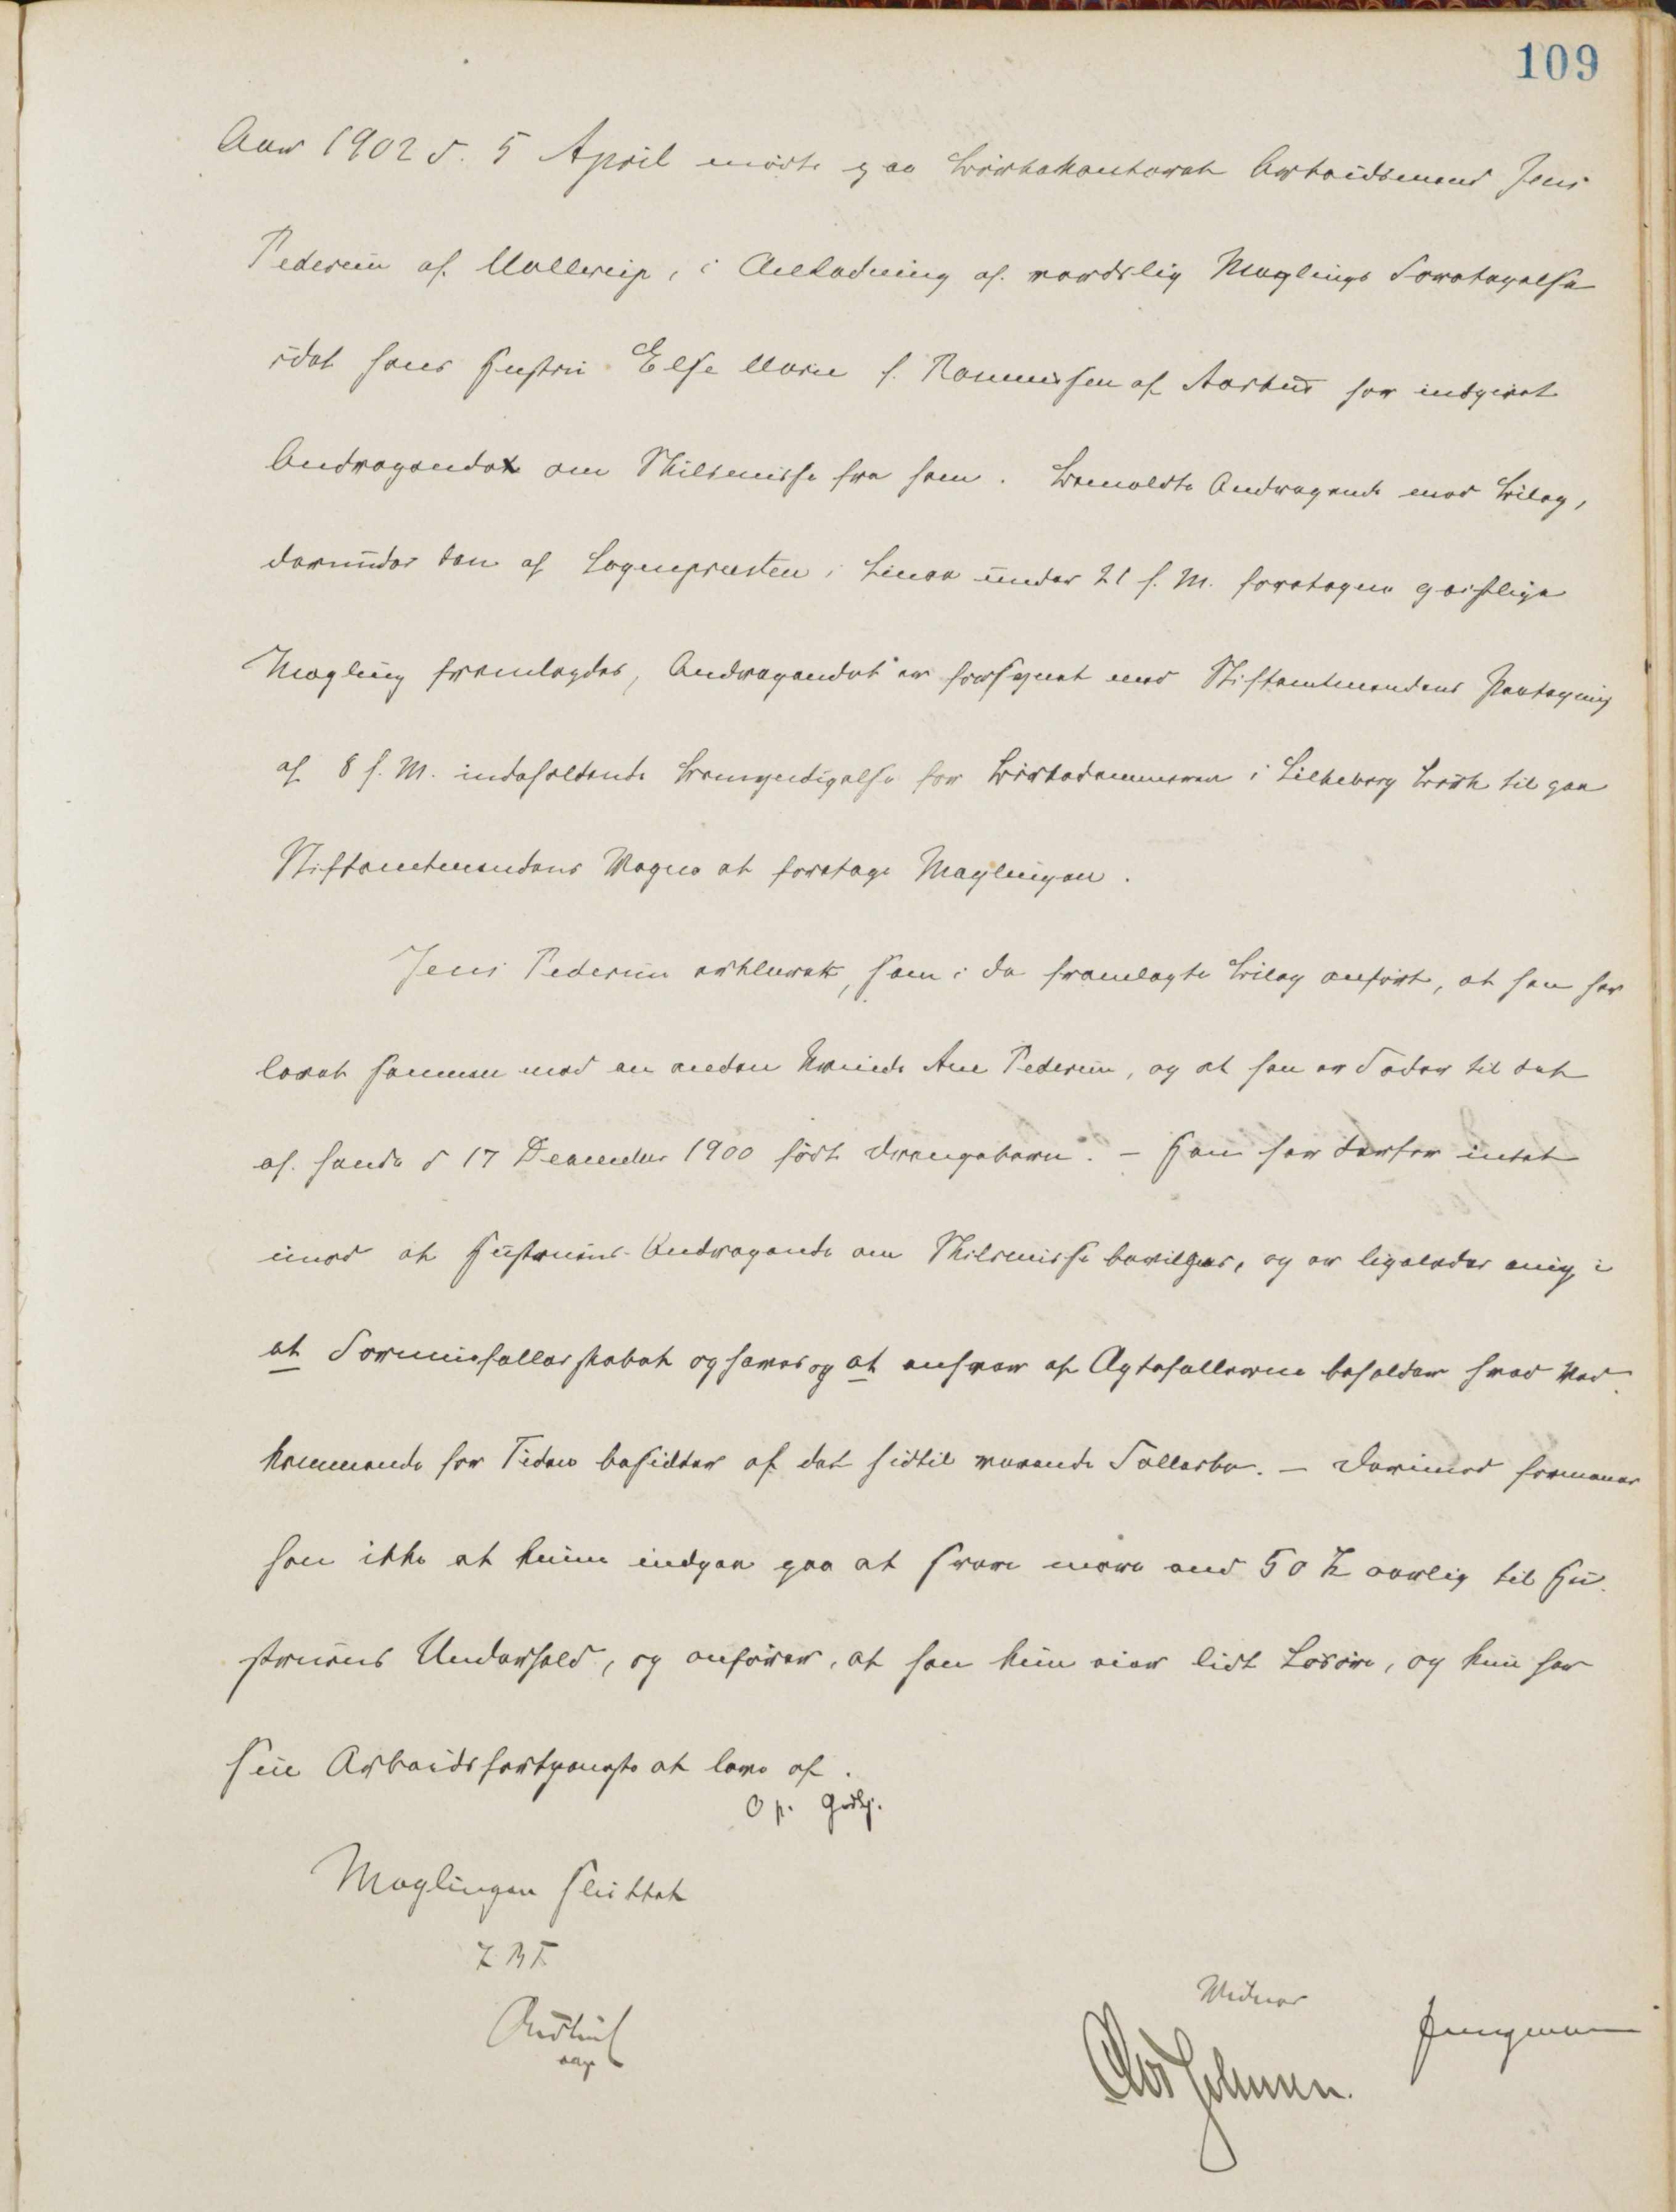 109
Aar 1902 d. 5 April mødte paa Birkekontoret Arbeidsmand Jens
Pedersen af Mollerup, i Anledning af verdslig Mæglings Foretagelse
idet hans Hustru Else Marie f. Rasmussen af Aarhus har indgivet
Andragende om Skilsmisse fra ham. Bemeldte Andragende med Bilag,
derunder den af Sognepræsten i Linaa under 21 f. M. foretagne geistlige
Mægling fremlagdes, Andragendet er forsynet med Stiftamtmandens Paategning
af 8 f. M. indeholdende Bemyndigelse for Birkedommeren i Silkeborg Birk til paa
Stiftamtmandens Vegne at foretage Mæglingen.
Jens Pedersen erklærede, som i de fremlagte Bilag anført, at han har
levet sammen med en anden Kvinde Ane Pedersen, og at han er Fader til det
af hende d 17 December 1900 fødte Drengebarn. - Han har derfor intet
imod at Hustruens Andragende om Skilsmisse bevilges, og er ligeledes enig i
at Formuefællesskabet ophæves og at enhver af Ægtefællerne beholder hvad Ved-
kommende for Tiden besidder af det hidtil værende Fællesbo. - Derimod formener
han ikke at kunne indgaa paa at svare mere end 50 Kr aarlig til Hu-
struens Underhold, og anfører, at han kun eier lidt Løsøre, og kun har
sin Arbeidsfortjeneste at leve af.
Op. Godkj.
Mæglingen sluttet
Vidner
Jungmann